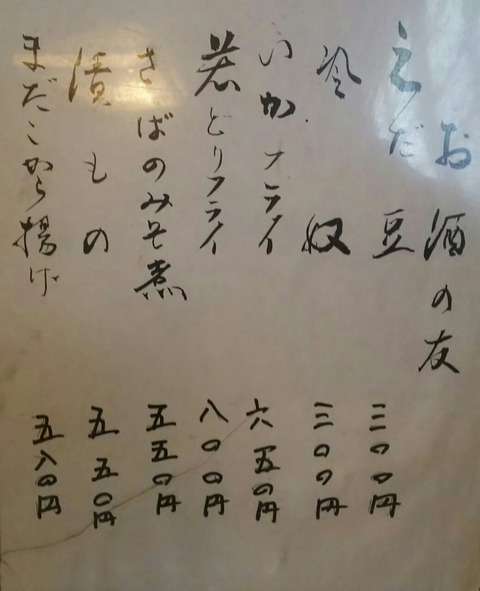 お酒の友
えだ豆 三〇〇円
冷奴 三〇〇円
いかフライ 六五〇円
若どりフライ 八〇〇円
さばのみそ煮 五五〇円
漬もの 五五〇円
まだこから揚げ 五八〇円